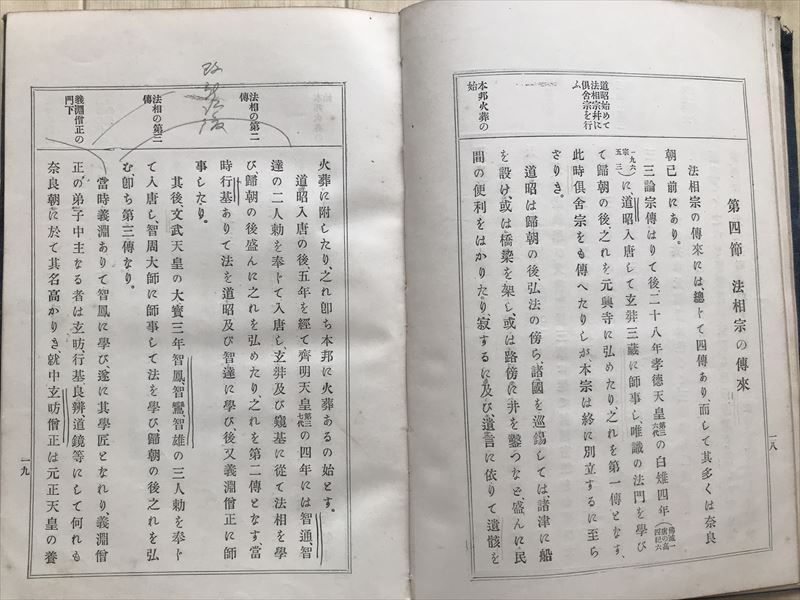 道昭始めて
法相宗幷に
俱舍宗を行
ふ
本邦火葬の
始
第四節　法相宗の傳來
法相宗の傳來には、總じて四傳あり、而して其多くは奈良
朝已前にあり。
三論宗傳はりて後、二十八年孝德天皇第三六代の白雉四年
に、道昭入唐して玄弉三藏に師事し、唯識の法門を學び
て歸朝の後、之れを元興寺に弘めたり、之れを第一傳となす、
此時俱舍宗をも傳へたりしが、本宗は終に別立するに至ら
ざりき。
道昭は歸朝の後、弘法の傍ら、諸國を巡錫しては、諸津に船
を設け、或は橋梁を架し、或は路傍に井を鑿つなど、盛んに民
間の便利をはかりたり、寂するに及び、遺言に依りて遺骸を
一八
法相の第二
傳
法相の第三
傳
義淵僧正の
門下
火葬に附したり、之れ卽ち本邦に火葬あるの始とす。
道昭入唐の後五年を經て、齊明天皇第三七代の四年には智通、智
達の二人勅を奉じて入唐し、玄弉及び窺基に從て法相を學
び歸朝の後盛んに之れを弘めたり、之れを第二傳となす、當
時行基ありて法を道昭及び智達に學び後又義淵僧正に師
事したり。
其後、文武天皇の大寶三年智鳳、智鸞、智雄の三人勅を奉じ
て入唐し、智周大師に師事して法を學び、歸朝の後之れを弘
む卽ち第三傳なり。
當時義淵ありて智鳳に學び遂に其學匠となれり、義淵僧
正の弟子中主なる者は玄昉、行基、良辨、道鏡等にして何れも
奈良朝に於て其名高かりき就中玄昉僧正は元正天皇の養
一九